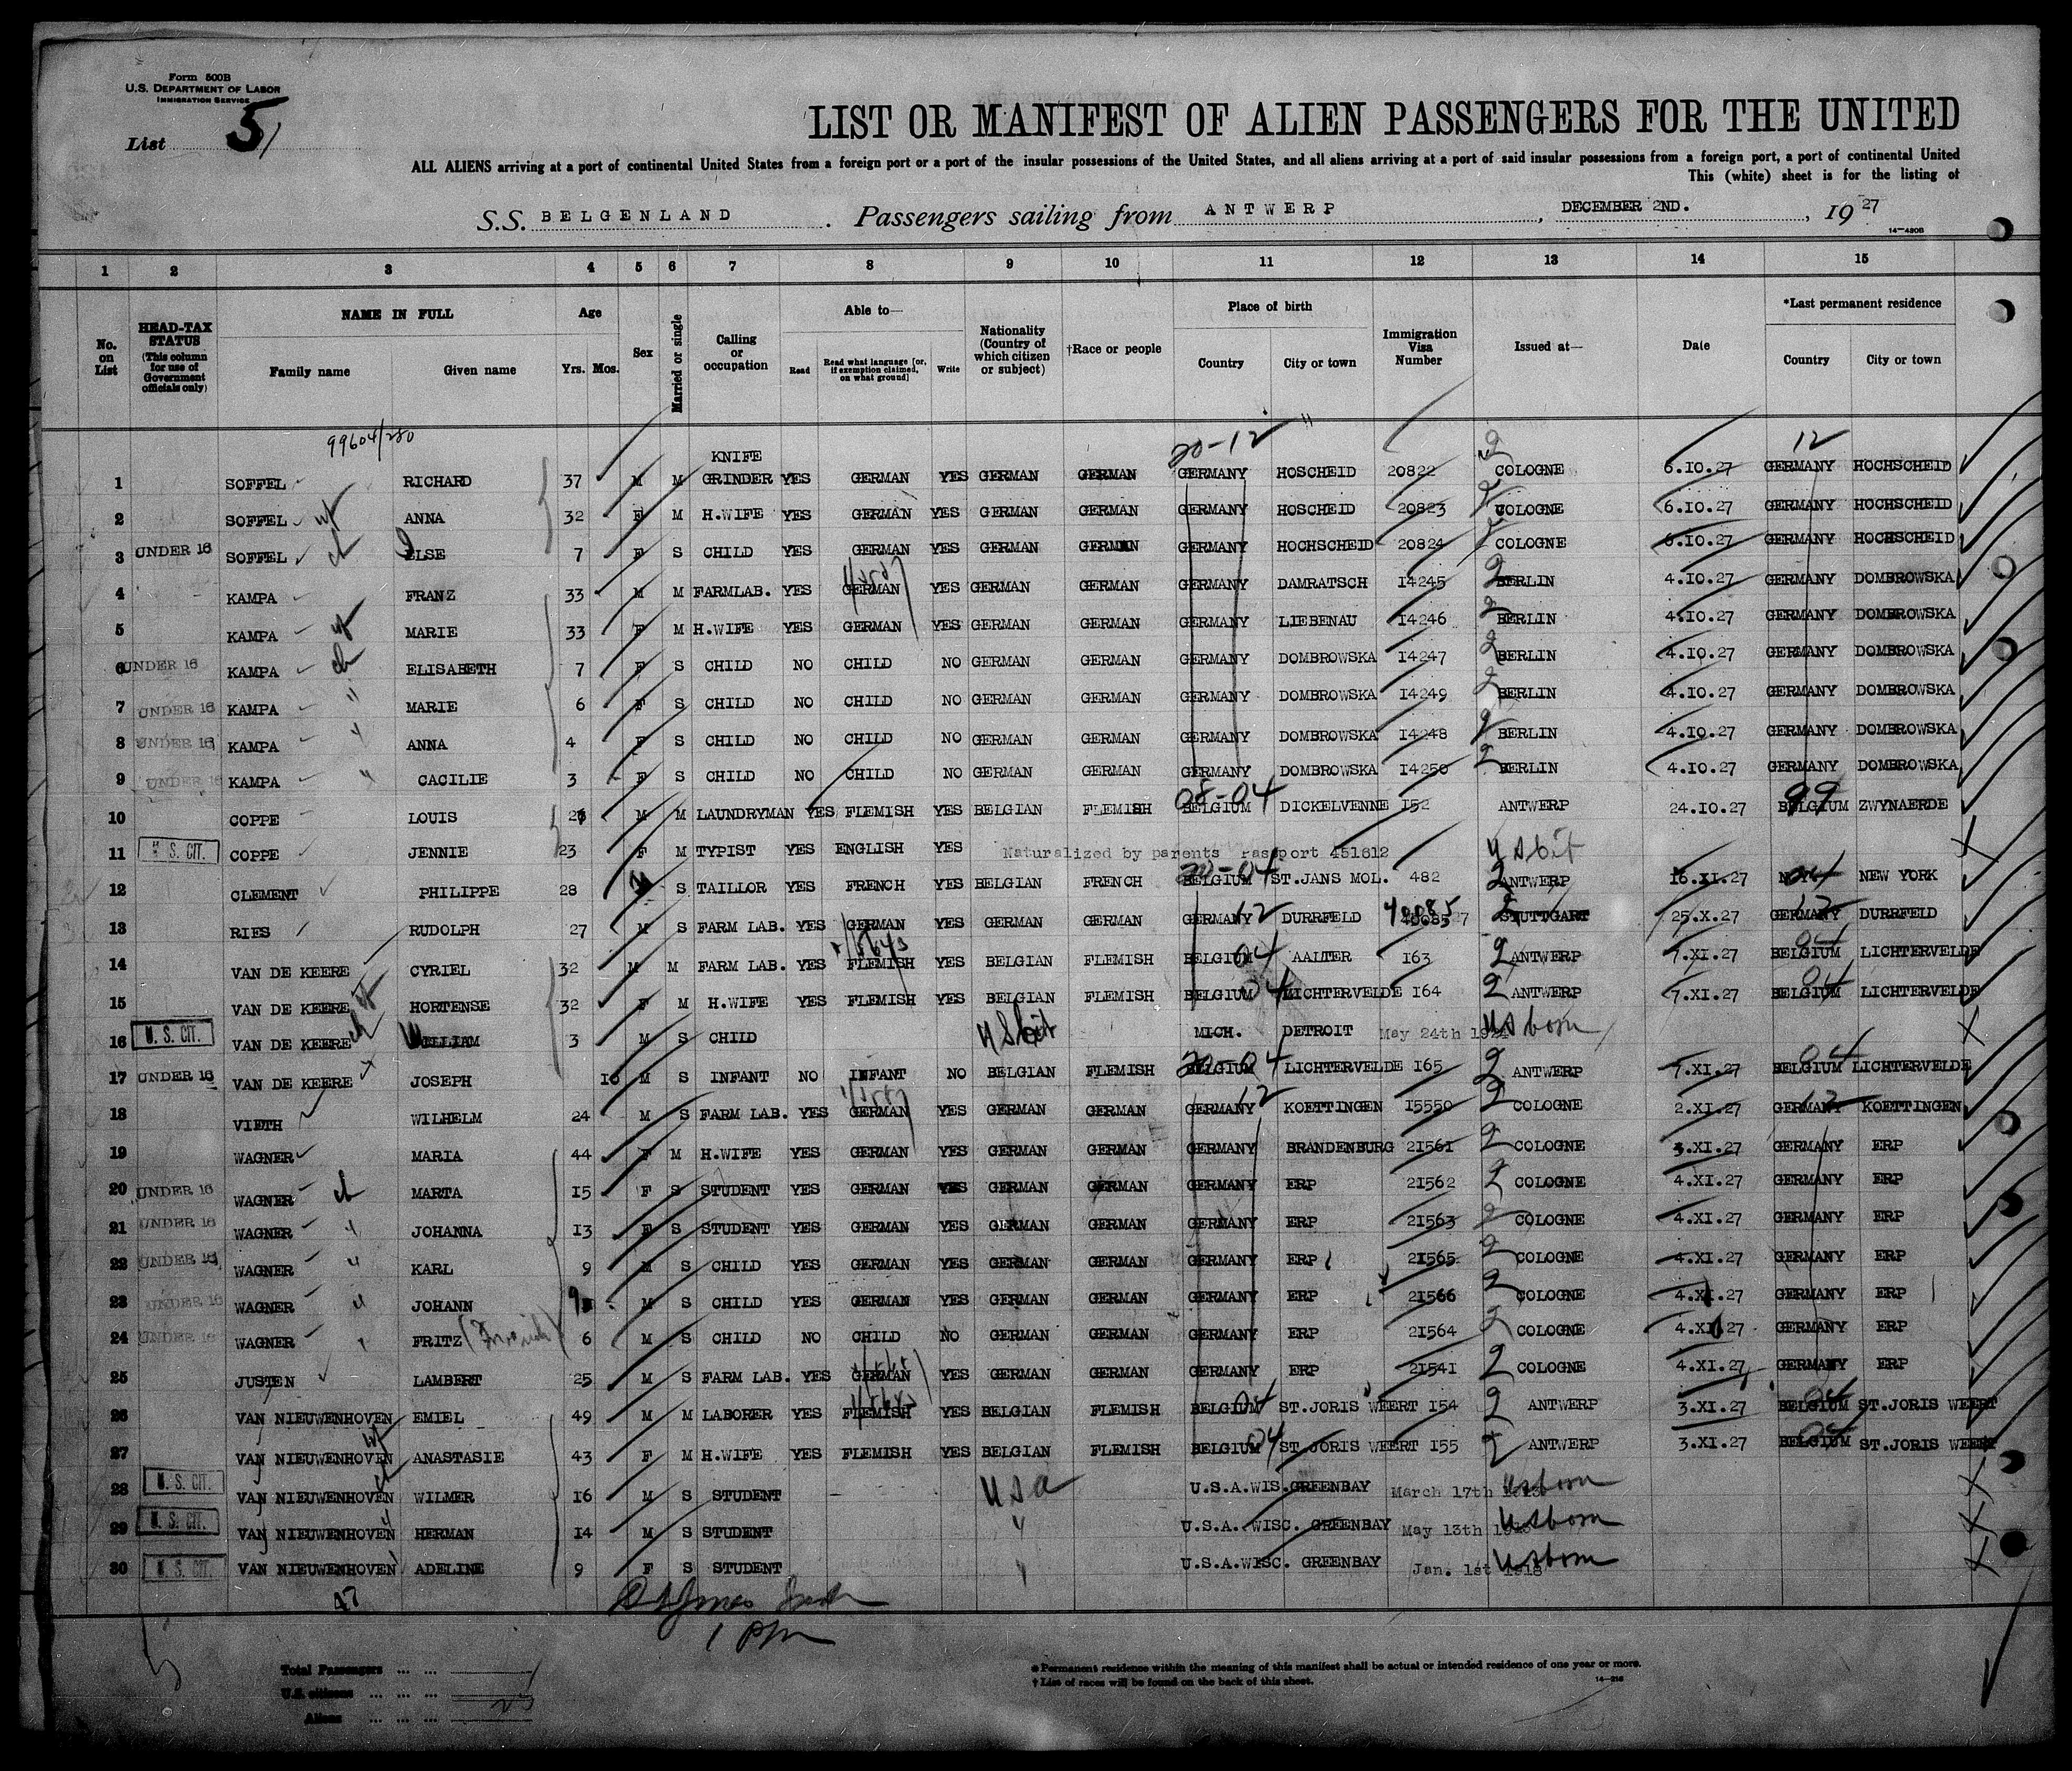 Form 500B
U.S. DEPARTMENT OF LABOR
IMMIGRATION SERVICE
List 51
LIST OR MANIFEST OF ALIEN PASSENGERS FOR THE UNITED
ALL ALIENS arriving at a port of continental United States from a foreign port or a port of the insular possessions of the United States, and all aliens arriving at a port of said insular possessions from a foreign port, a port of continental United
This (white) sheet is for the listing of
S.S. BELGENLAND. Passengers sailing from ANTWERP, DECEMBER 2ND., 1927
14—430B
1 2 3 4 5 6 7 8 9 10 11 12 13 14 15
No. on List
HEAD-TAX STATUS (This column for use of Government officials only)
NAME IN FULL Family name Given name
Age Yrs. Mos.
Sex
Married or single
Calling or occupation
Able to— Read Read what language [or, if exemption claimed, on what ground] Write
Nationality (Country of which citizen or subject)
†Race or people
Place of birth Country City or town
Immigration Visa Number
Issued at—
Date
*Last permanent residence Country City or town
99604/280 20-12 12
1 SOFFEL RICHARD 37 M M KNIFE GRINDER YES GERMAN YES GERMAN GERMAN GERMANY HOSCHEID 20822 COLOGNE 6.10.27 GERMANY HOCHSCHEID
2 SOFFEL wf ANNA 32 F M H.WIFE YES GERMAN YES GERMAN GERMAN GERMANY HOSCHEID 20823 COLOGNE 6.10.27 GERMANY HOCHSCHEID
3 UNDER 16 SOFFEL ch ELSE 7 F S CHILD YES GERMAN YES GERMAN GERMAN GERMANY HOCHSCHEID 20824 COLOGNE 6.10.27 GERMANY HOCHSCHEID
4 KAMPA FRANZ 33 M M FARMLAB. YES GERMAN YES GERMAN GERMAN GERMANY DAMRATSCH 14245 2 BERLIN 4.10.27 GERMANY DOMBROWSKA
5 KAMPA wf MARIE 33 F M H.WIFE YES GERMAN YES GERMAN GERMAN GERMANY LIEBENAU 14246 2 BERLIN 4.10.27 GERMANY DOMBROWSKA
6 UNDER 16 KAMPA ch ELISABETH 7 F S CHILD NO CHILD NO GERMAN GERMAN GERMANY DOMBROWSKA 14247 2 BERLIN 4.10.27 GERMANY DOMBROWSKA
7 UNDER 16 KAMPA " MARIE 6 F S CHILD NO CHILD NO GERMAN GERMAN GERMANY DOMBROWSKA 14249 2 BERLIN 4.10.27 GERMANY DOMBROWSKA
8 UNDER 16 KAMPA " ANNA 4 F S CHILD NO CHILD NO GERMAN GERMAN GERMANY DOMBROWSKA 14248 2 BERLIN 4.10.27 GERMANY DOMBROWSKA
9 UNDER 16 KAMPA " CACILIE 3 F S CHILD NO CHILD NO GERMAN GERMAN GERMANY DOMBROWSKA 14250 2 BERLIN 4.10.27 GERMANY DOMBROWSKA
10 COPPE LOUIS M M LAUNDRYMAN YES FLEMISH YES BELGIAN FLEMISH 08-04 BELGIUM DICKELVENNE 152 ANTWERP 24.10.27 99 BELGIUM ZWYNAERDE
11 U.S. CIT. COPPE JENNIE 23 F M TYPIST YES ENGLISH YES Naturalized by parents Passport 451812 U S Cit
12 CLEMENT PHILIPPE 28 M S TAILLOR YES FRENCH YES BELGIAN FRENCH 20-04 BELGIUM ST.JANS MOL. 482 2 ANTWERP 16.XI.27 04 NEW YORK
13 RIES RUDOLPH 27 M S FARM LAB. YES GERMAN YES GERMAN GERMAN GERMANY 12 DURRFELD 40085 2 STUTTGART 25.X.27 GERMANY 12 DURRFELD
14 VAN DE KEERE CYRIEL 32 M M FARM LAB. YES FLEMISH YES BELGIAN FLEMISH BELGIUM 04 AALTER 163 2 ANTWERP 7.XI.27 04 BELGIUM LICHTERVELDE
15 VAN DE KEERE wf HORTENSE 32 F M H.WIFE YES FLEMISH YES BELGIAN FLEMISH BELGIUM 04 LICHTERVELDE 164 2 ANTWERP 7.XI.27 04 BELGIUM LICHTERVELDE
16 U.S. CIT. VAN DE KEERE ch WILLIAM 3 M S CHILD U S Cit MICH. DETROIT May 24th 1924 U S born
17 UNDER 16 VAN DE KEERE JOSEPH 10 M S INFANT NO INFANT NO BELGIAN FLEMISH 20-04 BELGIUM LICHTERVELDE 165 2 ANTWERP 7.XI.27 04 BELGIUM LICHTERVELDE
18 VIETH WILHELM 24 M S FARM LAB. YES GERMAN YES GERMAN GERMAN GERMANY 12 KOETTINGEN 15550 2 COLOGNE 2.XI.27 GERMANY 12 KOETTINGEN
19 WAGNER MARIA 44 F M H.WIFE YES GERMAN YES GERMAN GERMAN GERMANY BRANDENBURG 21561 2 COLOGNE .XI.27 GERMANY ERP
20 UNDER 16 WAGNER ch MARTA 15 F S STUDENT YES GERMAN YES GERMAN GERMAN GERMANY ERP 21562 2 COLOGNE 4.XI.27 GERMANY ERP
21 UNDER 16 WAGNER " JOHANNA 13 F S STUDENT YES GERMAN YES GERMAN GERMAN GERMANY ERP 21563 2 COLOGNE 4.XI.27 GERMANY ERP
22 UNDER 16 WAGNER " KARL 9 M S CHILD YES GERMAN YES GERMAN GERMAN GERMANY ERP 21565 2 COLOGNE 4.XI.27 GERMANY ERP
23 UNDER 16 WAGNER " JOHANN 9 M S CHILD YES GERMAN YES GERMAN GERMAN GERMANY ERP 21566 2 COLOGNE 4.XI.27 GERMANY ERP
24 UNDER 16 WAGNER " FRITZ 6 M S CHILD NO CHILD NO GERMAN GERMAN GERMANY ERP 21564 2 COLOGNE 4.XI.27 GERMANY ERP
25 JUSTEN LAMBERT 25 M S FARM LAB. YES GERMAN YES GERMAN GERMAN GERMANY ERP 21541 2 COLOGNE 4.XI.27 GERMANY ERP
26 VAN NIEUWENHOVEN EMIEL 49 M M LABORER YES FLEMISH YES BELGIAN FLEMISH BELGIUM 04 ST.JORIS WEERT 154 2 ANTWERP 3.XI.27 04 BELGIUM ST.JORIS WEERT
27 VAN NIEUWENHOVEN wf ANASTASIE 43 F M H.WIFE YES FLEMISH YES BELGIAN FLEMISH BELGIUM 04 ST.JORIS WEERT 155 2 ANTWERP 3.XI.27 04 BELGIUM ST.JORIS WEERT
28 U.S. CIT. VAN NIEUWENHOVEN ch WILMER 16 M S STUDENT U S A U.S.A.WIS.GREENBAY March 17th U S born
29 U.S. CIT. VAN NIEUWENHOVEN " HERMAN 14 M S STUDENT " U.S.A. WISC. GREENBAY May 13th U S born
30 U.S. CIT. VAN NIEUWENHOVEN " ADELINE 9 F S STUDENT " U.S.A.WISC. GREENBAY Jan. 1st 1918 U S born
1 PM
Total Passengers ... ...
U.S. citizens ... ... ...
Aliens ... ... ...
* Permanent residence within the meaning of this manifest shall be actual or intended residence of one year or more.
† List of races will be found on the back of this sheet.
14—216